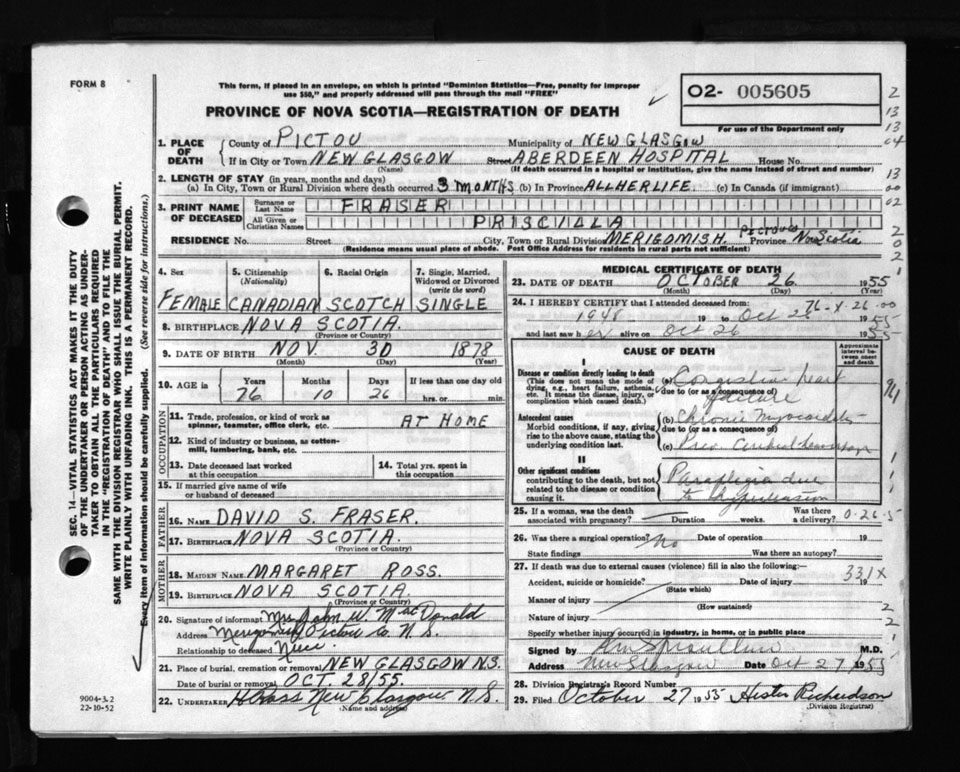 FORM 8
This form, if placed in an envelope, on which is printed "Dominion Statistics—Free, penalty for improper
use $50," and properly addressed will pass through the mail "FREE"
PROVINCE OF NOVA SCOTIA—REGISTRATION OF DEATH
02- 005605
For use of the Department only
1. PLACE OF DEATH
County of PICTOU Municipality of NEW GLASGOW
If in City or Town NEW GLASGOW Street ABERDEEN HOSPITAL House No.
(Name) (If death occurred in a hospital or institution, give the name instead of street and number)
2. LENGTH OF STAY (in years, months and days)
(a) In City, Town or Rural Division where death occurred 3 MONTHS (b) In Province ALL HER LIFE. (c) In Canada (if immigrant)
3. PRINT NAME OF DECEASED
Surname or Last Name FRASER
All Given or Christian Names PRISCILLA
RESIDENCE No. Street City, Town or Rural Division MERIGOMISH. PICTOU Province Nova Scotia
(Residence means usual place of abode. Post Office Address for residents in rural parts not sufficient)
4. Sex 5. Citizenship (Nationality) 6. Racial Origin 7. Single, Married, Widowed or Divorced (write the word)
FEMALE CANADIAN SCOTCH SINGLE
8. BIRTHPLACE NOVA SCOTIA.
(Province or Country)
9. DATE OF BIRTH NOV. 30 1878
(Month) (Day) (Year)
10. AGE in Years Months Days If less than one day old
76 10 26 hrs. or min.
OCCUPATION
11. Trade, profession, or kind of work as
spinner, teamster, office clerk, etc. AT HOME
12. Kind of industry or business, as cotton-
mill, lumbering, bank, etc.
13. Date deceased last worked at this occupation
14. Total yrs. spent in this occupation
15. If married give name of wife
or husband of deceased
FATHER
16. NAME DAVID S. FRASER.
17. BIRTHPLACE NOVA SCOTIA.
(Province or Country)
MOTHER
18. MAIDEN NAME MARGARET ROSS.
19. BIRTHPLACE NOVA SCOTIA.
(Province or Country)
20. Signature of informant Mrs John W. MacDonald
Address Merigomish Pictou Co. N. S.
Relationship to deceased
21. Place of burial, cremation or removal NEW GLASGOW N.S.
Date of burial or removal OCT. 28/55.
22. UNDERTAKER New Glasgow N.S.
(Name and address)
9004-3.2
22-10-52
MEDICAL CERTIFICATE OF DEATH
23. DATE OF DEATH OCTOBER 26 1955
(Month) (Day) (Year)
24. I HEREBY CERTIFY that I attended deceased from: 76-X-26-00
1948 19 to Oct 26 1955
and last saw her alive on Oct 26 1955
CAUSE OF DEATH
Approximate interval between onset and death
I
Disease or condition directly leading to death
(This does not mean the mode of dying, e.g., heart failure, asthenia, etc. It means the disease, injury, or complication which caused death.)
(a) Congestive heart failure
due to (or as a consequence of)
Antecedent causes
Morbid conditions, if any, giving rise to the above cause, stating the underlying condition last.
(b) Chronic Myocarditis
due to (or as a consequence of)
(c) Prev Cerebral hemorrhage
II
Other significant conditions
contributing to the death, but not related to the disease or condition causing it.
Paraplegia due
to hypertension
25. If a woman, was the death associated with pregnancy? Duration weeks. Was there a delivery? 0-26-5
26. Was there a surgical operation? No Date of operation 19
State findings Was there an autopsy?
27. If death was due to external causes (violence) fill in also the following:—
331X
Accident, suicide or homicide? Date of injury 19
(State which)
Manner of injury
(How sustained)
Nature of injury
Specify whether injury occurred in industry, in home, or in public place
Signed by M.D.
Address New Glasgow Date Oct 27 1955
28. Division Registrar's Record Number
29. Filed October 27 1955 Hester Richardson
(Division Registrar)
SEC. 14—VITAL STATISTICS ACT MAKES IT THE DUTY
OF THE UNDERTAKER OR PERSON ACTING AS UNDER-
TAKER TO OBTAIN ALL THE PARTICULARS REQUIRED
IN THE "REGISTRATION OF DEATH" AND TO FILE THE
SAME WITH THE DIVISION REGISTRAR WHO SHALL ISSUE THE BURIAL PERMIT.
WRITE PLAINLY WITH UNFADING INK. THIS IS A PERMANENT RECORD.
Every item of information should be carefully supplied. (See reverse side for instructions.)
2
13
13
04
13
00
02
2
0
2
1